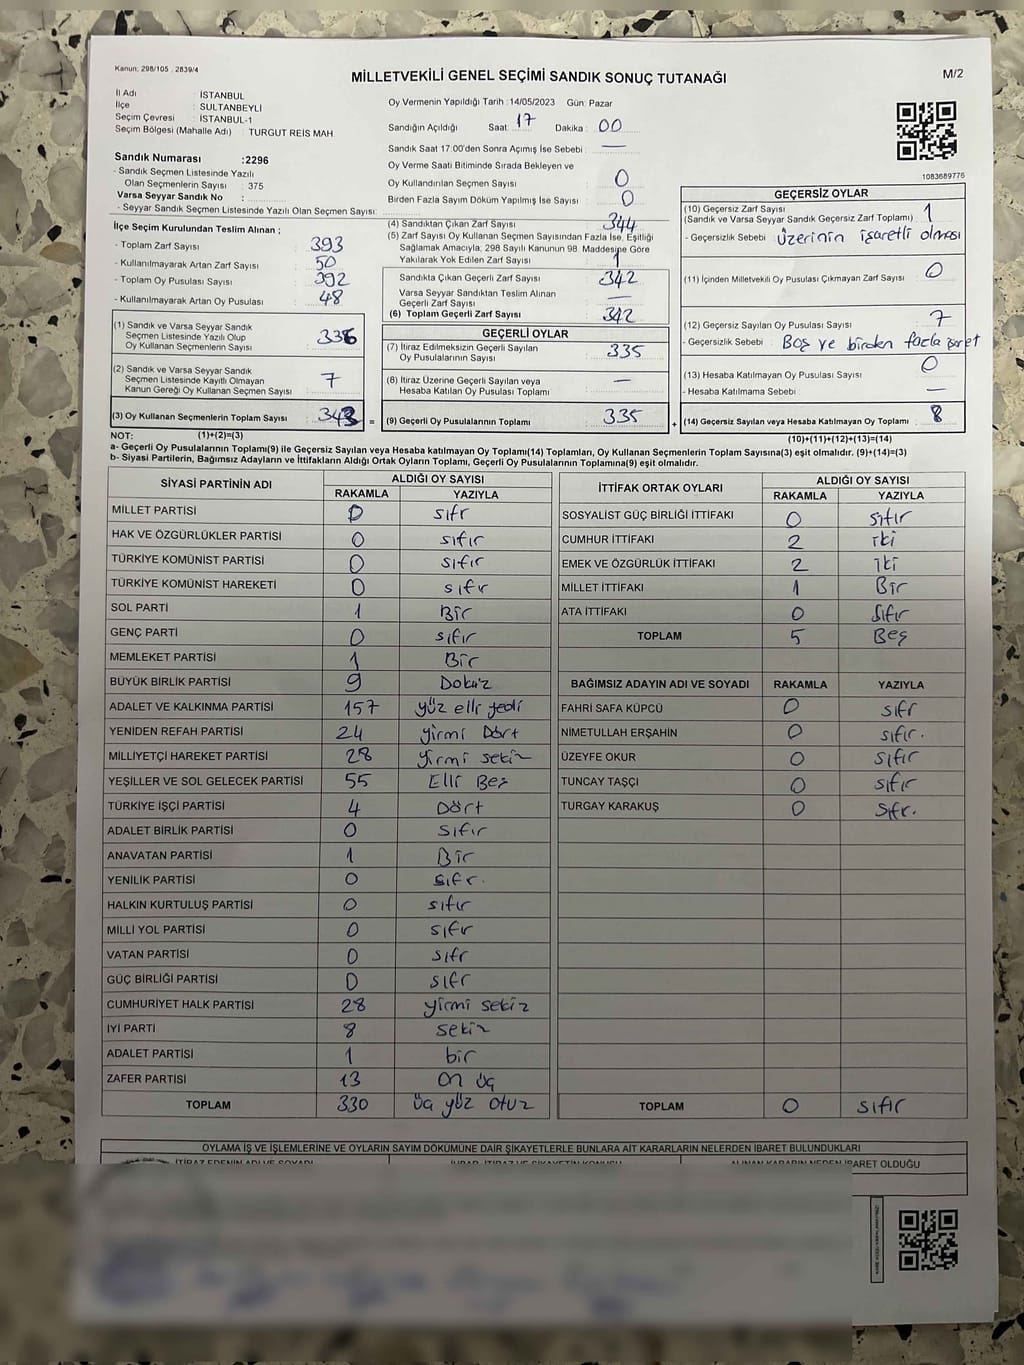 Kanun: 298/105 , 2839/4
MİLLETVEKİLİ GENEL SEÇİMİ SANDIK SONUÇ TUTANAĞI
M/2
İl Adı : İSTANBUL
İlçe : SULTANBEYLİ
Seçim Çevresi : İSTANBUL-1
Seçim Bölgesi (Mahalle Adı) : TURGUT REİS MAH
Sandık Numarası :2296
- Sandık Seçmen Listesinde Yazılı
Olan Seçmenlerin Sayısı : 375
Varsa Seyyar Sandık No :
- Seyyar Sandık Seçmen Listesinde Yazılı Olan Seçmen Sayısı:
Oy Vermenin Yapıldığı Tarih :14/05/2023 Gün: Pazar
Sandığın Açıldığı Saat: 17 Dakika : 00
Sandık Saat 17:00'den Sonra Açımış İse Sebebi : —
Oy Verme Saati Bitiminde Sırada Bekleyen ve
Oy Kullandırılan Seçmen Sayısı : 0
Birden Fazla Sayım Döküm Yapılmış İse Sayısı : 0
1083689776
İlçe Seçim Kurulundan Teslim Alınan ;
- Toplam Zarf Sayısı : 393
- Kullanılmayarak Artan Zarf Sayısı : 50
- Toplam Oy Pusulası Sayısı : 392
- Kullanılmayarak Artan Oy Pusulası : 48
(1) Sandık ve Varsa Seyyar Sandık
Seçmen Listesinde Yazılı Olup
Oy Kullanan Seçmenlerin Sayısı : 336
(2) Sandık ve Varsa Seyyar Sandık
Seçmen Listesinde Kayıtlı Olmayan
Kanun Gereği Oy Kullanan Seçmen Sayısı : 7
(3) Oy Kullanan Seçmenlerin Toplam Sayısı : 343 =
(4) Sandıktan Çıkan Zarf Sayısı : 344
(5) Zarf Sayısı Oy Kullanan Seçmen Sayısından Fazla İse, Eşitliği
Sağlamak Amacıyla, 298 Sayılı Kanunun 98. Maddesine Göre
Yakılarak Yok Edilen Zarf Sayısı : 1
Sandıkta Çıkan Geçerli Zarf Sayısı : 342
Varsa Seyyar Sandıktan Teslim Alınan
Geçerli Zarf Sayısı : —
(6) Toplam Geçerli Zarf Sayısı : 342
GEÇERLİ OYLAR
(7) İtiraz Edilmeksizin Geçerli Sayılan
Oy Pusulalarının Sayısı : 335
(8) İtiraz Üzerine Geçerli Sayılan veya
Hesaba Katılan Oy Pusulaları Toplamı : —
(9) Geçerli Oy Pusulalarının Toplamı : 335 +
GEÇERSİZ OYLAR
(10) Geçersiz Zarf Sayısı
(Sandık ve Varsa Seyyar Sandık Geçersiz Zarf Toplamı) : 1
- Geçersizlik Sebebi : Üzerinin işaretli olması
(11) İçinden Milletvekili Oy Pusulası Çıkmayan Zarf Sayısı : 0
(12) Geçersiz Sayılan Oy Pusulası Sayısı : 7
- Geçersizlik Sebebi : Boş ve birden fazla işaret
(13) Hesaba Katılmayan Oy Pusulası Sayısı : 0
- Hesaba Katılmama Sebebi : —
(14) Geçersiz Sayılan veya Hesaba Katılmayan Oy Toplamı : 8
NOT: (1)+(2)=(3)
(10)+(11)+(12)+(13)=(14)
a- Geçerli Oy Pusulalarının Toplamı(9) ile Geçersiz Sayılan veya Hesaba katılmayan Oy Toplamı(14) Toplamları, Oy Kullanan Seçmenlerin Toplam Sayısına(3) eşit olmalıdır. (9)+(14)=(3)
b- Siyasi Partilerin, Bağımsız Adayların ve İttifakların Aldığı Ortak Oyların Toplamı, Geçerli Oy Pusulalarının Toplamına(9) eşit olmalıdır.
SİYASİ PARTİNİN ADI ALDIĞI OY SAYISI
RAKAMLA YAZIYLA
MİLLET PARTİSİ 0 sıfr
HAK VE ÖZGÜRLÜKLER PARTİSİ 0 sıfır
TÜRKİYE KOMÜNİST PARTİSİ 0 sıfır
TÜRKİYE KOMÜNİST HAREKETİ 0 sıfır
SOL PARTİ 1 Bir
GENÇ PARTİ 0 sıfır
MEMLEKET PARTİSİ 1 Bir
BÜYÜK BİRLİK PARTİSİ 9 Dokuz
ADALET VE KALKINMA PARTİSİ 157 yüz elli yedi
YENİDEN REFAH PARTİSİ 24 yirmi Dört
MİLLİYETÇİ HAREKET PARTİSİ 28 yirmi sekiz
YEŞİLLER VE SOL GELECEK PARTİSİ 55 Elli Beş
TÜRKİYE İŞÇİ PARTİSİ 4 Dört
ADALET BİRLİK PARTİSİ 0 sıfır
ANAVATAN PARTİSİ 1 Bir
YENİLİK PARTİSİ 0 sıfr.
HALKIN KURTULUŞ PARTİSİ 0 sıfır
MİLLİ YOL PARTİSİ 0 sıfır
VATAN PARTİSİ 0 sıfr
GÜÇ BİRLİĞİ PARTİSİ 0 sıfr
CUMHURİYET HALK PARTİSİ 28 yirmi sekiz
İYİ PARTİ 8 sekiz
ADALET PARTİSİ 1 bir
ZAFER PARTİSİ 13 on üç
TOPLAM 330 üç yüz otuz
İTTİFAK ORTAK OYLARI ALDIĞI OY SAYISI
RAKAMLA YAZIYLA
SOSYALİST GÜÇ BİRLİĞİ İTTİFAKI 0 sıfır
CUMHUR İTTİFAKI 2 iki
EMEK VE ÖZGÜRLÜK İTTİFAKI 2 iki
MİLLET İTTİFAKI 1 Bir
ATA İTTİFAKI 0 sıfır
TOPLAM 5 Beş
BAĞIMSIZ ADAYIN ADI VE SOYADI RAKAMLA YAZIYLA
FAHRİ SAFA KÜPCÜ 0 sıfr
NİMETULLAH ERŞAHİN 0 sıfır.
ÜZEYFE OKUR 0 sıfır
TUNCAY TAŞÇI 0 sıfır
TURGAY KARAKUŞ 0 sıfr.
TOPLAM 0 sıfır
OYLAMA İŞ VE İŞLEMLERİNE VE OYLARIN SAYIM DÖKÜMÜNE DAİR ŞİKAYETLERLE BUNLARA AİT KARARLARIN NELERDEN İBARET BULUNDUKLARI
İTİRAZ EDENİN ADI VE SOYADI
ALINAN KARARIN NEDEN İBARET OLDUĞU